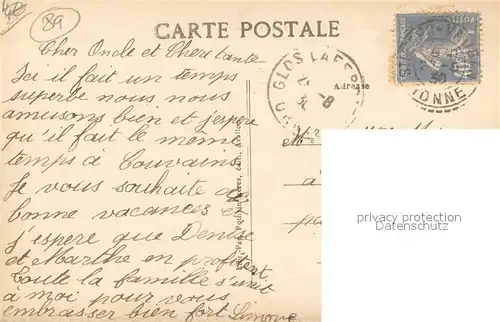 42
89
CARTE POSTALE
Cher Oncle et Chere tante
Ici il fait un temps
superbe nous nous
amusons bien et j'espere
qu'il fait le même
temps à Couvains.
Je vous souhaite de
bonne vacances et
j'espere que Denise
et Marthe en profitent
Toute la famille s'unit
à moi pour vous
embrasser bien fort Simone
GLOS LA FERR
Adresse
M
à
YONNE
privacy protection
Datenschutz